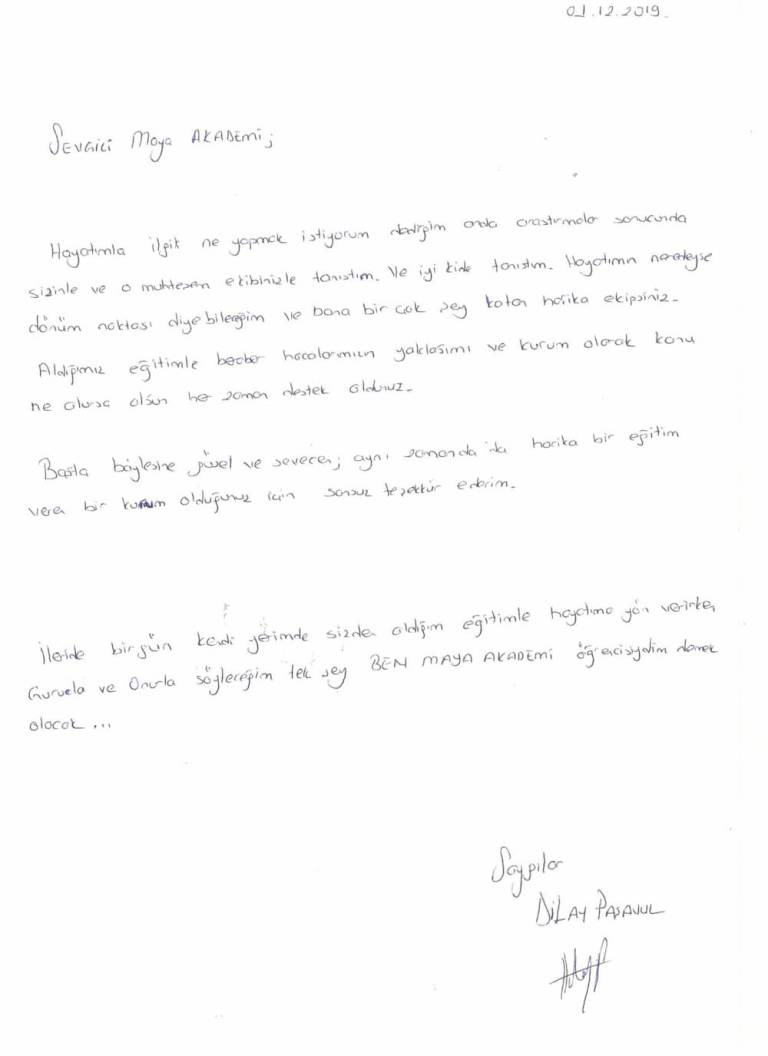 01.12.2019
Sevgili Maya AKADEMİ;
Hayatımla ilgili ne yapmak istiyorum dediğim anda araştırmalar sonucunda
sizinle ve o muhteşem ekibinizle tanıştım. Ve iyi kide tanıştım. Hayatımın neredeyse
dönüm noktası diyebileceğim ve bana bir çok şey katan harika ekipsiniz.
Aldığımız eğitimle beraber hocalarımızın yaklaşımı ve kurum olarak konu
ne olursa olsun her zaman destek oldunuz.
Başta böylesine güzel ve sevecen; aynı zamanda da harika bir eğitim
veren bir kurum olduğunuz için sonsuz teşekkür ederim.
İleride birgün kendi yerimde sizden aldığım eğitimle hayatıma yön verirken
Gururla ve Onurla söyleceğim tek şey BEN MAYA AKADEMİ öğrencisiydim demek
olacak...
Saygılar
DİLAY